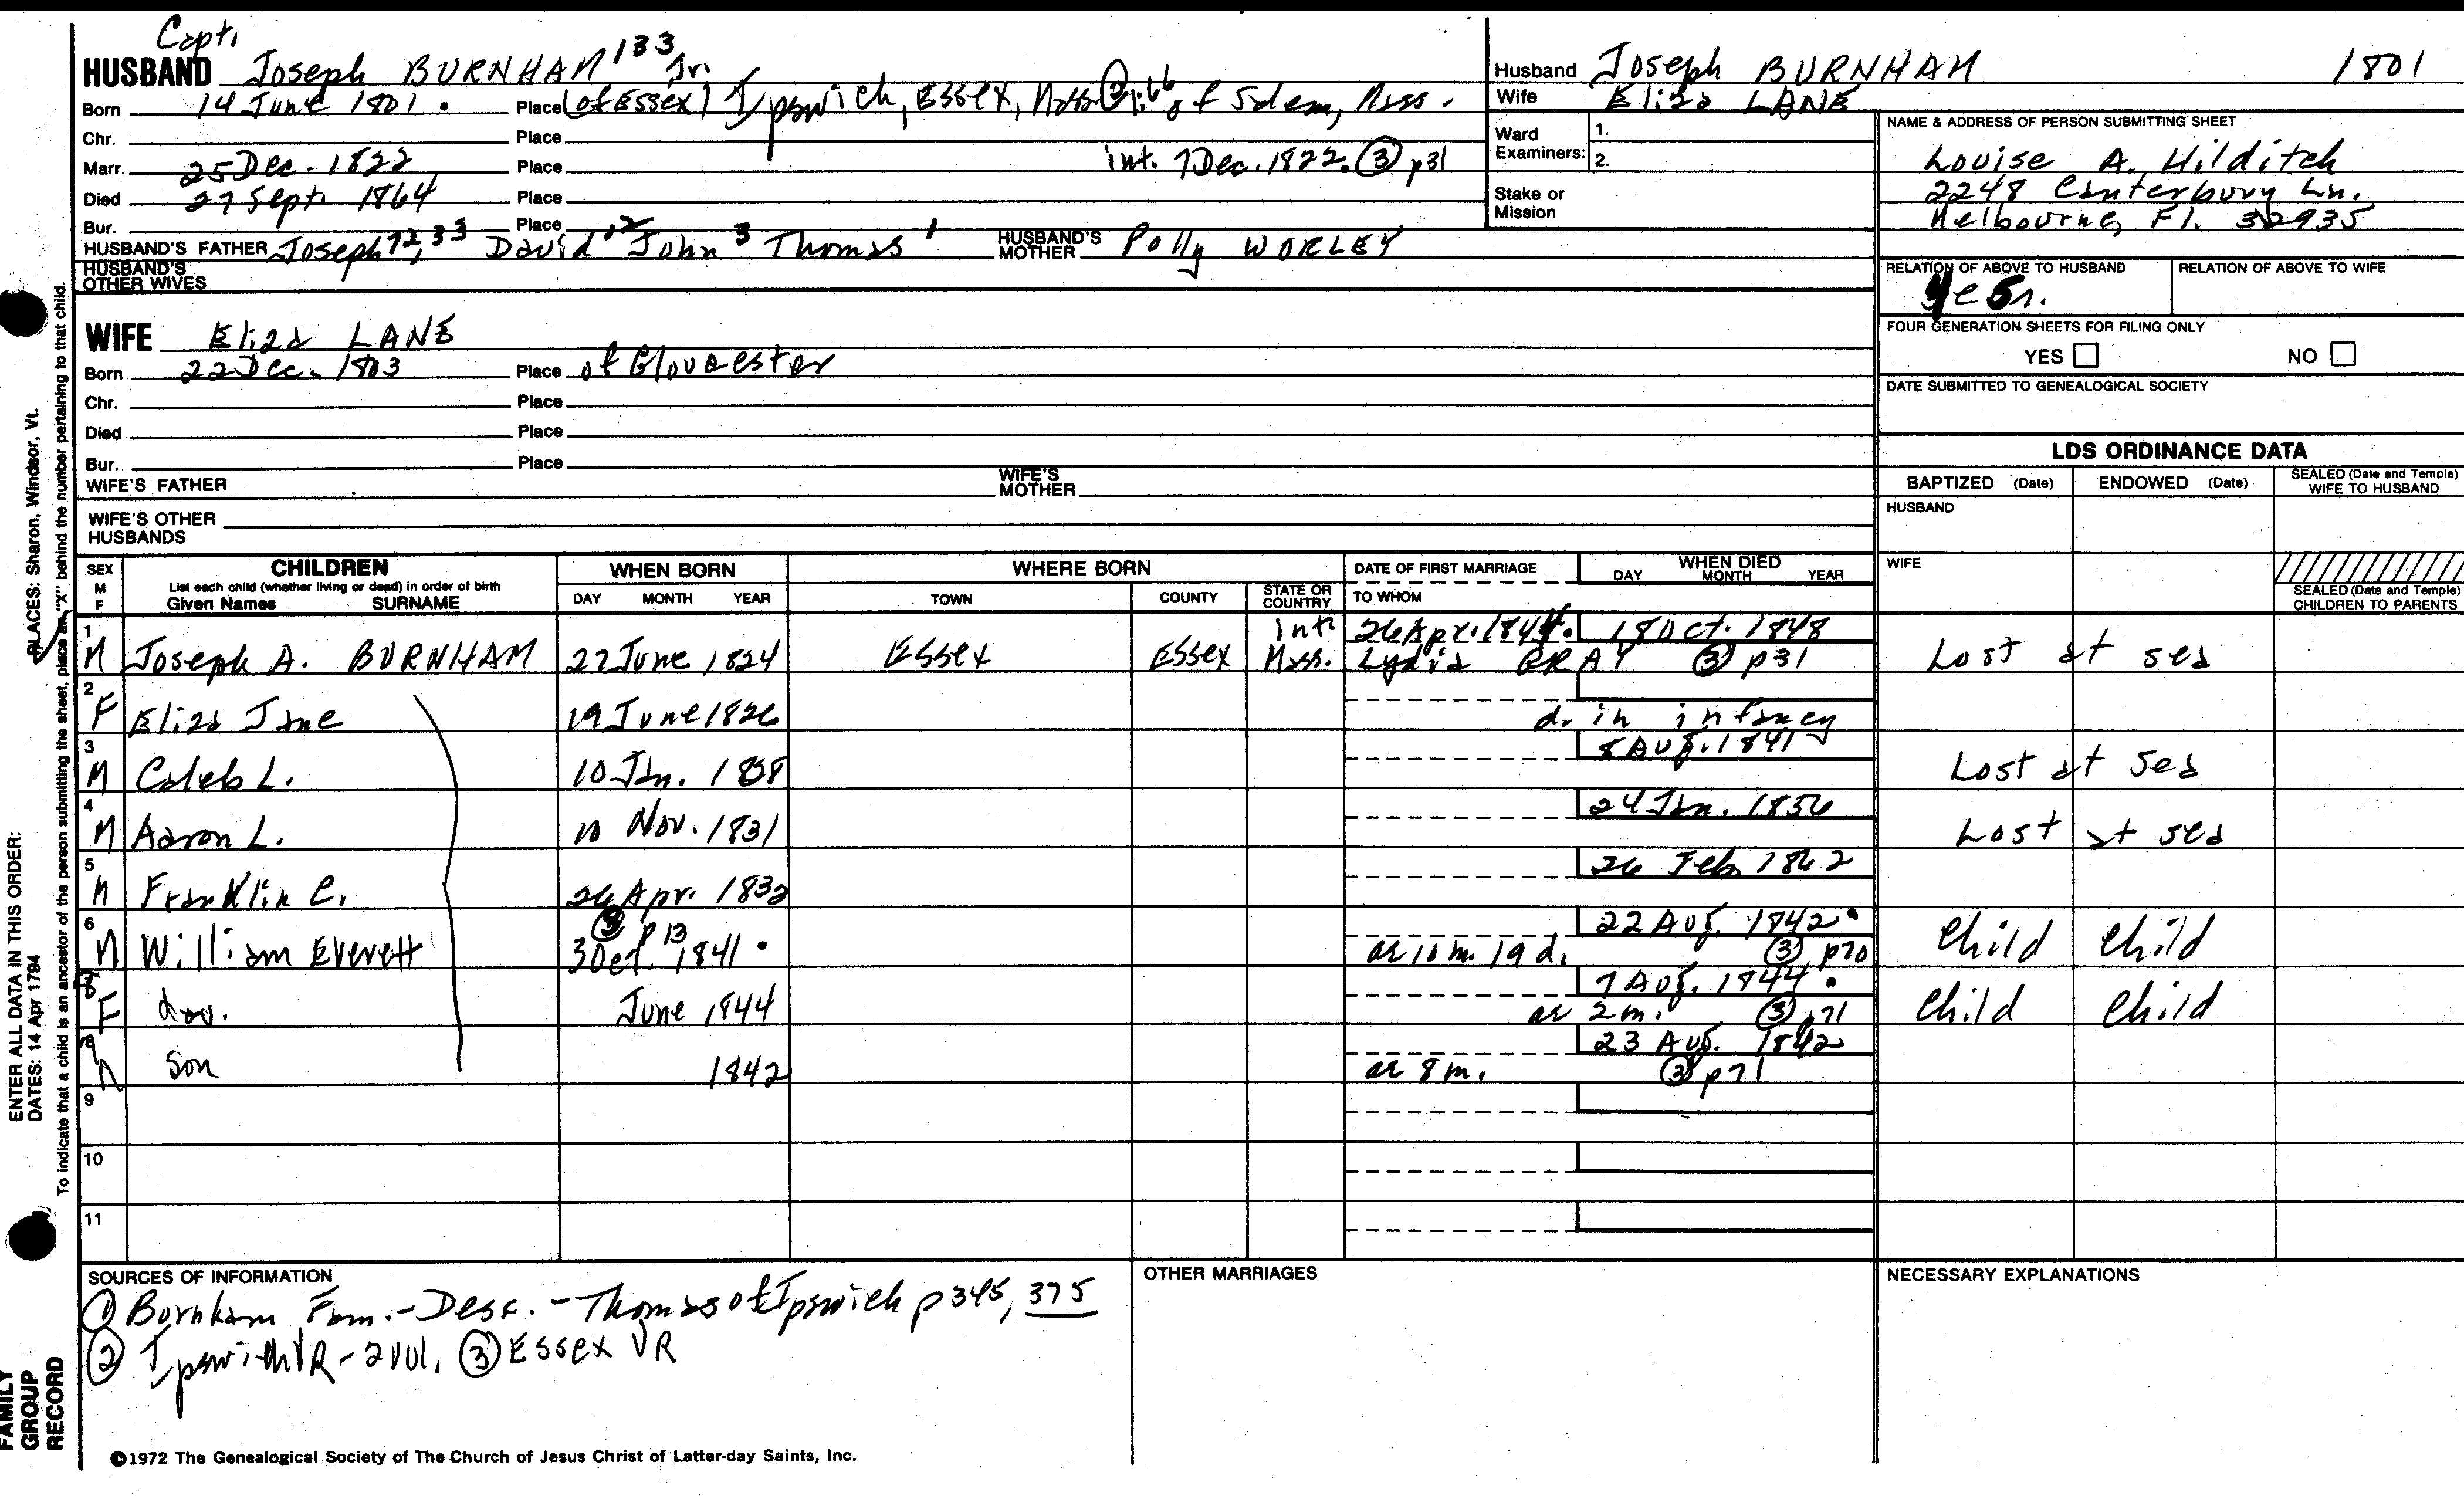 Capt.
HUSBAND Joseph BURNHAM 133 Jr.
Born 14 June 1801. Place (of Essex) Ipswich, Essex, Mass. of Salem, Mass.
Chr. Place
Marr. 25 Dec. 1822 Place int. 7 Dec. 1822. (3) p31
Died 27 Sept. 1864 Place
Bur. Place
HUSBAND'S FATHER Joseph David John 3 Thomas 1 HUSBAND'S MOTHER Polly WORLEY
HUSBAND'S OTHER WIVES
WIFE Eliza LANE
Born 22 Dec. 1803 Place of Gloucester
Chr. Place
Died Place
Bur. Place
WIFE'S FATHER WIFE'S MOTHER
WIFE'S OTHER HUSBANDS
Husband Joseph BURNHAM 1801
Wife Eliza LANE
Ward Examiners: 1.
2.
Stake or Mission
NAME & ADDRESS OF PERSON SUBMITTING SHEET
Louise A. Hilditch
2248 Canterbury Ln.
Melbourne, Fl. 32935
RELATION OF ABOVE TO HUSBAND RELATION OF ABOVE TO WIFE
FOUR GENERATION SHEETS FOR FILING ONLY
YES NO
DATE SUBMITTED TO GENEALOGICAL SOCIETY
LDS ORDINANCE DATA
BAPTIZED (Date) ENDOWED (Date) SEALED (Date and Temple) WIFE TO HUSBAND
HUSBAND
WIFE
SEALED (Date and Temple) CHILDREN TO PARENTS
SEX M F CHILDREN WHEN BORN WHERE BORN DATE OF FIRST MARRIAGE WHEN DIED
List each child (whether living or dead) in order of birth
Given Names SURNAME DAY MONTH YEAR TOWN COUNTY STATE OR COUNTRY TO WHOM DAY MONTH YEAR
1 int. 26 Apr. 1844. 18 Oct. 1848
M Joseph A. BURNHAM 27 June 1824 Essex Essex Mass. Lydia GRAY (3) p31 Lost at sea
2
F Eliza Jane 19 June 1826 d. in infancy
3 8 Aug. 1841
M Caleb L. 10 Jan. 1828 Lost at sea
4 24 Jan. 1856
M Aaron L. 10 Nov. 1831 Lost at sea
5 26 Feb. 1862
M Franklin C. 26 Apr. 1832
6 (3) p13 22 Aug. 1842.
M William Everett 3 Oct. 1841. ae 10 m. 19 d. (3) p70 Child Child
8 7 Aug. 1844.
F dau. June 1844 ae 2 m. (3) p71 Child Child
23 Aug. 1842
M son 1842 ae 8 m. (3) p71
9
10
11
SOURCES OF INFORMATION
(1) Burnham Fam. - Desc. - Thomas of Ipswich p 345, 375
(2) Ipswich VR - 2 Vol. (3) Essex VR
OTHER MARRIAGES
NECESSARY EXPLANATIONS
©1972 The Genealogical Society of The Church of Jesus Christ of Latter-day Saints, Inc.
FAMILY GROUP RECORD
ENTER ALL DATA IN THIS ORDER:
DATES: 14 Apr 1794
PLACES: Sharon, Windsor, Vt.
To indicate that a child is an ancestor of the person submitting the sheet, place an "X" behind the number pertaining to that child.